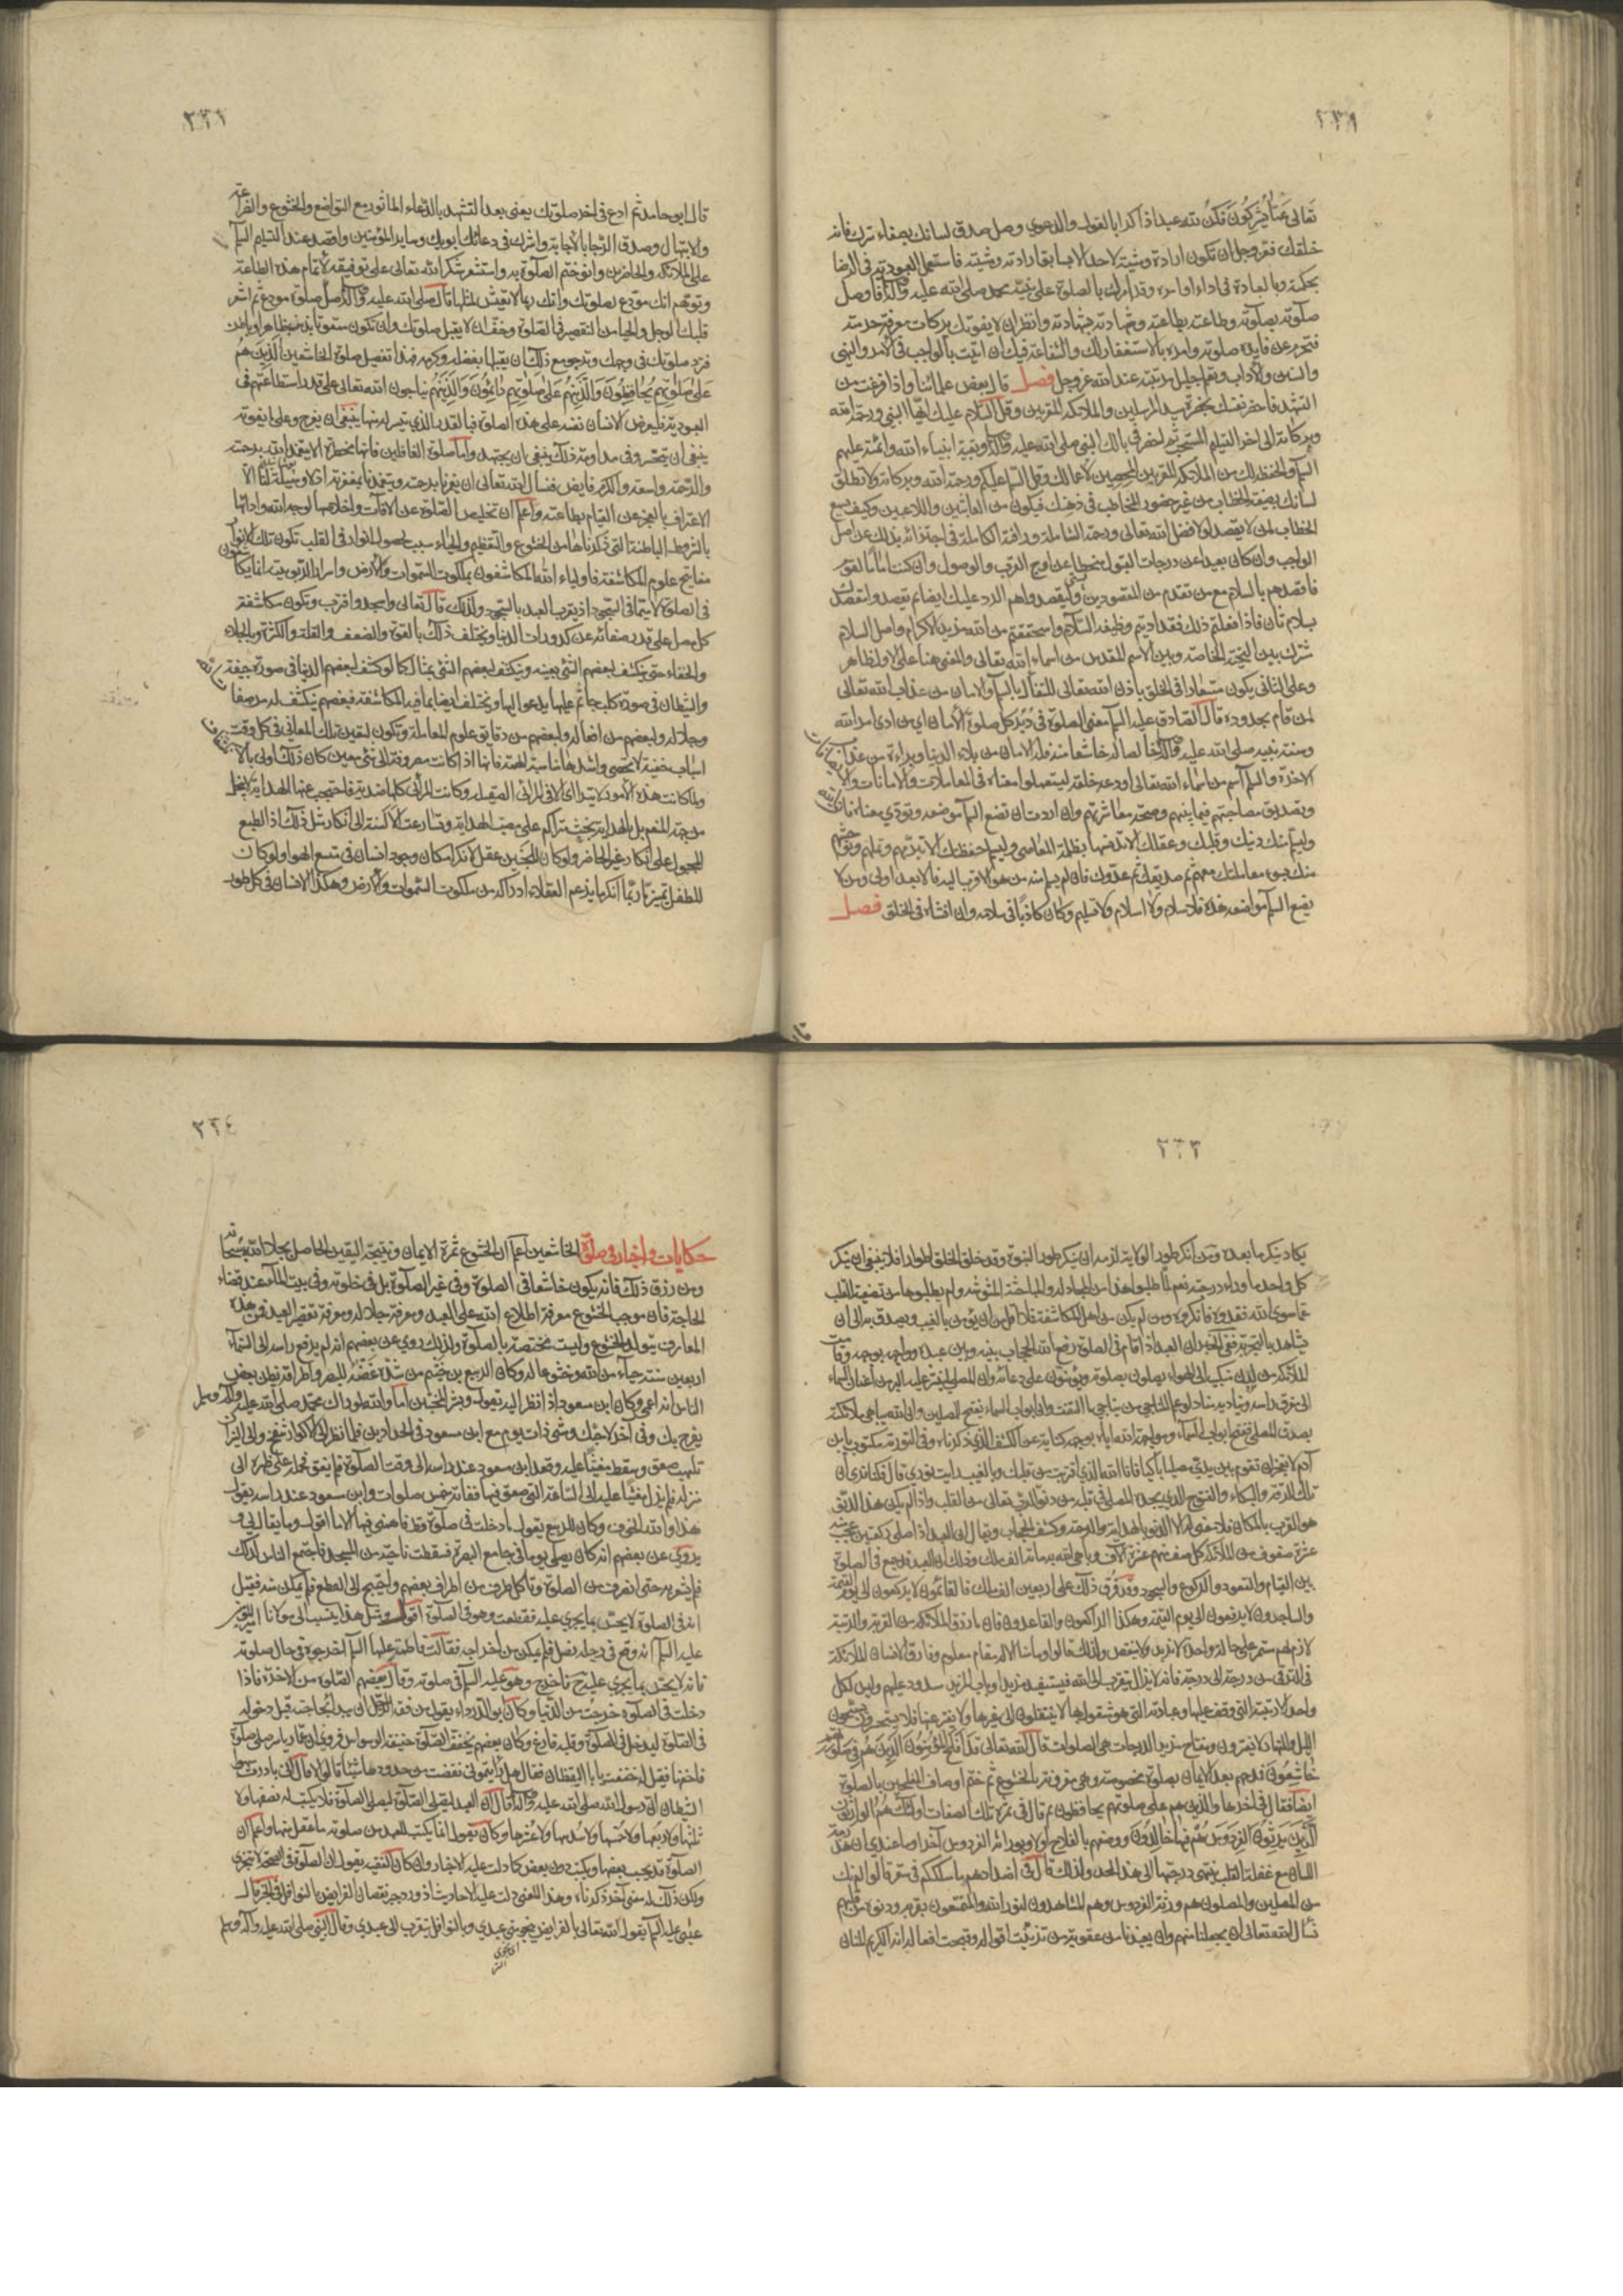 ٢٣١
تعالى عما يشركون فكن لله عبدا ذاكرا بالقول والدعوى وصل صدق لسانك بصفاء سرك فانه
خلقك فعز وجل ان تكون ارادة ومشية لاحد الا بسابق ارادته ومشيته فاستعمل العبودية في الرضا
بحكمه وبالعبادة في اداء اوامره وقد امرك بالصلوة على نبيه محمد صلى الله عليه وآله فاوصل
صلوته بصلوته وطاعته بطاعته وشهادته بشهادته وانظر ان لا يفوتك بركات معرفة حرمته
فتحرم عن فايدة صلوته وامره بالاستغفار لك والشفاعة فيك ان اتيت بالواجب في الامر والنهي
والسنن والآداب وتعلم جليل مرتبته عند الله عز وجل فصل قال بعض علمائنا واذا فرغت من
التشهد فاحضر نفسك بحضرة سيد المرسلين والملائكة المقربين وقل السلام عليك ايها النبي ورحمة الله
وبركاته الى اخر التسليم المستحب ثم احضر في بالك النبي صلى الله عليه وآله وبقية انبياء الله وائمته عليهم
السلم والحفظة لك من الملائكة المقربين المحصين لاعمالك وقل السلم عليكم ورحمة الله وبركاته ولا تطلق
لسانك بصيغة الخطاب من غير حضور المخاطب في ذهنك فتكون من العابثين واللاعبين وكيف يسمع
الخطاب لمن لا يقصد لولا فضل الله تعالى ورحمته الشاملة ورافته الكاملة في اجتزائه بذلك عن اصل
الواجب وان كان بعيدا عن درجات القبول منحطا عن اوج القرب والوصول وان كنت اماما لقوم
فاقصدهم بالسلام مع من تقدم من المقصودين وليقصدوا هم الرد عليك ايضا ثم يقصدوا مقصدك
بسلام ثان فاذا فعلتم ذلك فقد اديتم وظيفة السلام واستحققتم من الله مزيد الاكرام واصل السلام
مشترك بين التحية الخاصة وبين الاسم المقدس من اسماء الله تعالى والمعنى هنا على الاول ظاهر
وعلى الثاني يكون مستعارا في الخلق باذن الله تعالى للتفأل بالسلم والامان من عذاب الله تعالى
لمن قام بحدوده قال الصادق عليه السلم معنى السلم في دبر كل صلوة الأمان اي من ادى امر الله
وسنة نبيه صلى الله عليه وآله خالصا له خاشعا منه فله الامان من بلاء الدنيا وبراءة من عذاب
الاخرة والسلم اسم من اسماء الله تعالى اودعه خلقه ليستعملوا معناه في المعاملات والامانات والاضافات
وتصديق مصاحبتهم فيما بينهم وصحة معاشرتهم وان اردت ان تضع السلم موضعه وتؤدي معناه فاتق الله
وليسلم منك دينك وقلبك وعقلك الا تدنسها بظلمة المعاصي ولتسلم حفظتك الا تبرمهم وتملهم وتوحشهم
منك بسوء معاملتك معهم ثم صديقك ثم عدوك فان لم يسلم منه من هو الاقرب اليه فالابعد اولى ومن لا
يضع السلم مواضعه هذه فلا سلام ولا اسلام ولا تسليم وكان كاذبا في سلامه وان افشاه في الخلق فصل
٢٣٢
قال ابو حامد ثم ادع في اخر صلوتك يعني بعد التشهد بالدعاء الماثور مع التواضع والخشوع والضراعة
والابتهال وصدق الرجا بالاجابة واشرك في دعائك ابويك وساير المؤمنين واقصد عند التسليم السلم
على الملائكة والحاضرين وانو ختم الصلوة به واستشعر شكر الله تعالى على توفيقه لاتمام هذه الطاعة
وتوهم انك مودع لصلوتك وانك ربما لا تعيش لمثلها قال صلى الله عليه وآله صل صلوة مودع ثم اشعر
قلبك الوجل والحيا من التقصير في الصلوة وخف ان لا يقبل صلوتك وان تكون ممقوتا بذنب ظاهر او باطن
فترد صلوتك في وجهك وترجو مع ذلك ان يقبلها بفضله وكرمه هذا تفصيل صلوة الخاشعين الذين هم
على صلوتهم يحافظون والذينهم على صلوتهم دائمون والذينهم يناجون الله تعالى على قدر استطاعتهم في
العبودية فليعرض الانسان نفسه على هذه الصلوة فبالقدر الذي تيسر له منها ينبغي ان يفرح وعلى ما يفوته
ينبغي ان يتحسر وفي مداومة ذلك ينبغي ان يجتهد واما صلوة الغافلين فانها مخطرة الا ان يتغمد الله برحمته
والرحمة واسعة والكرم فايض فنسأل الله تعالى ان يغمرنا برحمته ويتغمدنا بمغفرته اذ لا وسيلة لنا الا
الاعتراف بالعجز عن القيام بطاعته واعلم ان تخليص الصلوة عن الآفات واخلاصها لوجه الله واداءها
بالشروط الباطنة التي ذكرناها من الخشوع والتعظيم والحياء سبب لحصول انوار في القلب تكون تلك الانوار
مفاتيح علوم المكاشفة فاولياء الله المكاشفون بملكوت السموات والارض واسرار الربوبية انما يكاشفون
في الصلوة لا سيما في السجود اذ يتقرب العبد بالسجود ولذلك قال تعالى واسجد واقترب وتكون مكاشفة
كل مصل على قدر صفائه عن كدورات الدنيا ويختلف ذلك بالقوة والضعف والقلة والكثرة وبالجلاء
والخفاء حتى ينكشف لبعضهم الشئ بعينه وينكشف لبعضهم الشئ بمثاله كما لو كشف لبعضهم الدنيا في صورة جيفة
والشيطان في صورة كلب جاثم عليها يدعو اليها ويختلف ايضا بما فيه المكاشفة فبعضهم ينكشف له من صفات
وجلاله ولبعضهم من افعاله ولبعضهم من دقايق علوم المعاملة وتكون لتعين تلك المعاني في كل وقت
اسباب خفية لا تحصى واشدها مناسبة الهمة فانها اذا كانت مصروفة الى شئ معين كان ذلك اولى بالانكشاف
ولما كانت هذه الامور لا تترااى الا في المرائي الصقيلة وكانت المرائي كلها صدية فاحتجب عنها الهداية لا لبخل
من جهة المنعم بل بالهداية بل بخبث متراكم على مصب الهداية وتسارعت الالسنة الى انكار مثل ذلك اذ الطبع
مجبول على انكار غير الحاضر ولو كان للجنين عقل لانكر امكان وجود انسان في متسع الهوا ولو كان
للطفل تميز ما ربما انكر ما يزعم العقلاء ادراكه من ملكوت السموات والارض وهكذا الانسان في كل طور
٢٣٣
يكاد ينكر ما بعده ومن انكر طور الولاية لزمه ان ينكر طور النبوة وقد خلق الخلق اطوارا فلا ينبغي ان ينكر
كل واحد ما وراء درجته نعم لما طلبوا هذا من المجادلة والمباحثة المشوشة ولم يطلبوها من تصفية القلب
عما سوى الله فقدوه فانكروه ومن لم يكن من اهل المكاشفة فلا اقل من ان يؤمن بالغيب ويصدق به الى ان
يشاهد بالتجربة ففي الخبر ان العبد اذا قام في الصلوة رفع الله الحجاب بينه وبين عبده وواجهه بوجهه وقامت
الملائكة من لدن منكبيه الى الهواء يصلون بصلوته ويؤمنون على دعائه وان المصلي لينثر عليه البر من اعنان السماء
الى مفرق راسه ويناديه مناد لو علم المناجي من يناجي ما التفت وان ابواب السماء يفتح للمصلين وان الله يباهي ملائكته
بصدق المصلي ففتح ابواب السماء ومواجهة الله اياه بوجهه كناية عن الكشف الذي ذكرناه وفي التورية مكتوب يابن
آدم لا تعجز ان تقوم بين يدي مصليا باكيا فانا الله الذي اقتربت من قلبك وبالغيب رايت نوري قال فكنا نرى ان
تلك الرقة والبكاء والفتوح الذي يجده المصلي في قلبه من دنو الرب تعالى من القلب واذا لم يكن هذا الدنو
هو القرب بالمكان فلا معنى له الا الدنو بالهداية والرحمة وكشف الحجاب ويقال ان العبد اذا صلى ركعتين عجب منه
عشرة صفوف من الملائكة كل صف منهم عشرة آلاف وباهى الله به مائة الف ملك وذلك ان العبد قد جمع في الصلوة
بين القيام والقعود والركوع والسجود وفرق ذلك على اربعين الف ملك فالقائمون لا يركعون الى يوم القيمة
والساجدون لا يرفعون الى يوم القيمة وهكذا الراكعون والقاعدون فان ما رزق الملائكة من القرب والرتبة
لازم لهم مستمر على حالة واحدة لا تزيد ولا ينقص ولذلك قالوا وما منا الا له مقام معلوم وفارق الانسان الملائكة
في الترقي من درجة الى درجة فانه لا يزال يتقرب الى الله فيستفيد مزيدا وباب المزيد مسدود عليهم وليس لكل
واحد الا رتبته التي وقف عليها وعبادته التي هو مشغول بها لا ينتقلون الى غيرها ولا يفتر عنها فلا يستحسرون يسبحون
الليل والنهار لا يفترون ومفتاح مزيد الدرجات هي الصلوات قال الله تعالى قد أفلح المؤمنون الذين هم في صلوتهم
خاشعون فمدحهم بعد الايمان بصلوة مخصوصة وهي مقرونة بالخشوع ثم ختم اوصاف المفلحين بالصلوة
ايضا فقال في اخرها والذين هم على صلوتهم يحافظون ثم قال في ثمرة تلك الصفات اولئك هم الوارثون
الذين يرثون الفردوس هم فيها خالدون ووصفهم بالفلاح اولا وبوراثة الفردوس آخرا وما عندي ان هذرمة
اللسان مع غفلة القلب ينتهي درجتها الى هذا الحد ولذلك قال في اضدادهم ما سلككم في سقر قالوا لم نك
من المصلين والمصلون هم ورثة الفردوس وهم المشاهدون لنور الله والمتمتعون بقربه ودنوه من قلوبهم
نسأل الله تعالى ان يجعلنا منهم وان يعيذنا من عقوبة من تزينت اقواله وقبحت افعاله انه الكريم المنان
٢٣٤
حكايات واخبار في صلوة الخاشعين اعلم ان الخشوع ثمرة الايمان ونتيجة اليقين الحاصل بجلال الله سبحانه
ومن رزق ذلك فانه يكون خاشعا في الصلوة وفي غير الصلوة بل في خلوته وفي بيت الماء عند قضاء
الحاجة فان موجب الخشوع معرفة اطلاع الله على العبد ومعرفة جلاله ومعرفة تقصير العبد فمن هذه
المعارف يتولد الخشوع وليست مختصة بالصلوة ولذلك روي عن بعضهم انه لم يرفع راسه الى السماء
اربعين سنة حياء من الله وخشوعا له وكان الربيع بن خثيم من شدة غضه للبصر واطراقه يظن بعض
الناس انه اعمى وكان ابن مسعود اذا نظر اليه يقول وبشر المخبتين اما والله لو راك محمد صلى الله عليه وآله وسلم
لفرح بك وفي آخر لاحبك ومشى ذات يوم مع ابن مسعود في الحدادين فلما نظر الى الاكوار تنفخ والى النار
تلهب صعق وسقط مغشيا عليه وقعد ابن مسعود عند راسه الى وقت الصلوة فلم يفق فحمله على ظهره الى
منزله فلم يزل مغشيا عليه الى الساعة التي صعق فيها ففاتته خمس صلوات وابن مسعود عند راسه يقول
هذا والله الخوف وكان الربيع يقول ما دخلت في صلوة قط فاهمني فيها الا ما اقول وما يقال لي و
يروى عن بعضهم انه كان يصلي يوما في جامع البصرة فسقطت ناحية من المسجد فاجتمع الناس لذلك
فلم يشعر به حتى انصرف من الصلوة وتاكل طرف من اطراف بعضهم واحتيج الى القطع فلم يمكن منه فقيل
انه في الصلوة لا يحس بما يجري عليه فقطعت وهو في الصلوة اقول ومثل هذا ينسب الى مولانا امير المؤمنين
عليه السلم انه وقع في رجله نصل فلم يمكن من اخراجه فقالت فاطمة عليها السلم اخرجوه في حال صلوته
فانه لا يحس بما يجري عليه ح فاخرج وهو عليه السلم في صلوته وقال بعضهم الصلوة من الاخرة فاذا
دخلت في الصلوة خرجت من الدنيا وكان ابو الدرداء يقول من فقه الرجل ان يبدأ بحاجته قبل دخوله
في الصلوة ليدخل في الصلوة وقلبه فارغ وكان بعضهم يخفف الصلوة خيفة الوسواس فروي ان عمار ياسر صلى صلوة
فاخفها فقيل له خففت يا ابا اليقظان فقال هل رايتموني نقصت من حدودها شيئا قالوا لا قال اني بادرت سهو
الشيطان ان رسول الله صلى الله عليه وآله قال ان العبد ليصلي الصلوة لا يكتب له نصفها ولا
ثلثها ولا ربعها ولا خمسها ولا سدسها ولا عشرها وكان يقول انما يكتب للعبد من صلوته ما عقل منها واعلم ان
الصلوة قد يحسب بعضها ويكتب دون بعض كما دلت عليه الاخبار وان كان الفقيه يقول ان الصلوة في الصحة لا تتجزى
ولكن ذلك له معنى آخر ذكرناه وهذا المعنى دلت عليه الاحاديث اذ ورد جبر نقصان الفرايض بالنوافل وفي الخبر قال
عيسى عليه السلم يقول الله تعالى بالفرايض نجى مني عبدي وبالنوافل يتقرب الي عبدي وقال النبي صلى الله عليه وآله وسلم